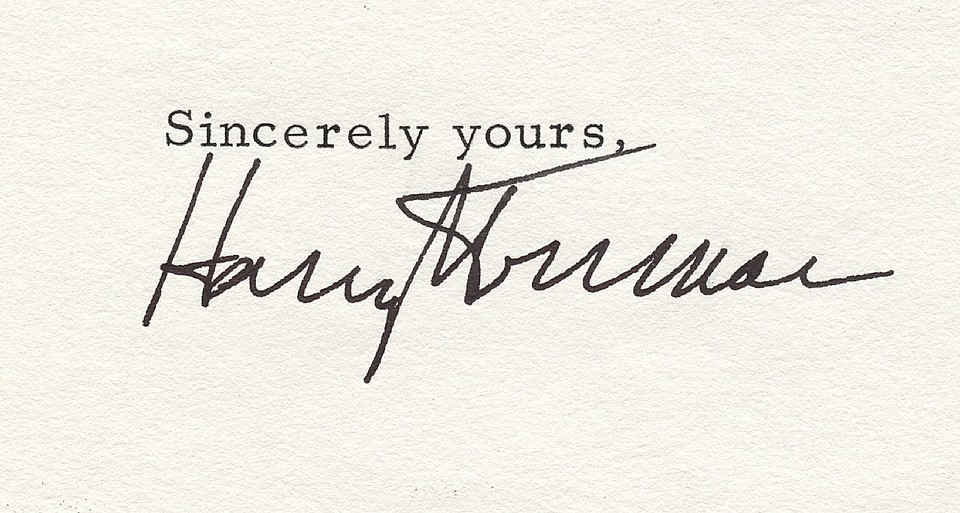 Sincerely yours,
Harry Truman